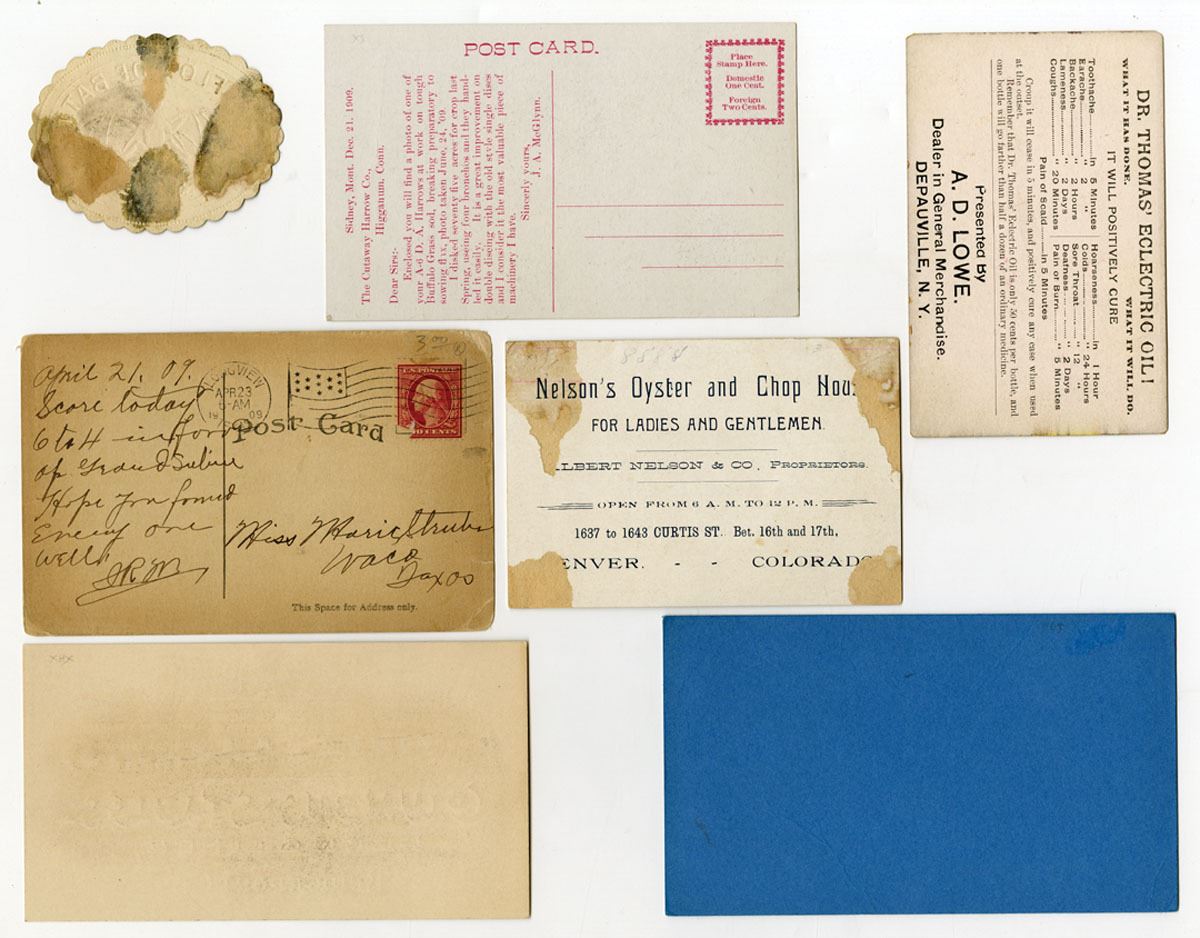 POST CARD.
Place
Stamp Here.
Domestic
One Cent.
Foreign
Two Cents.
Sidney, Mont. Dec. 21, 1909.
The Cutaway Harrow Co.,
Higganum, Conn.
Dear Sirs:-
Enclosed you will find a photo of one of
your A-6 D. A. Harrows at work on tough
Buffalo Grass sod, breaking preparatory to
sowing flax, photo taken June, 24, '09.
I disked seventy five acres for crop last
Spring, useing four bronchos and they hand-
led it easily. It is a great improvement on
double disking with the old style single discs
and I consider it the most valuable piece of
machinery I have.
Sincerely yours,
J. A. McGlynn.
DR. THOMAS' ECLECTRIC OIL!
WHAT IT HAS DONE. WHAT IT WILL DO.
IT WILL POSITIVELY CURE
Toothache in 5 Minutes Hoarseness in 1 Hour
Earache " 2 " Colds " 24 Hours
Backache " 2 Hours Sore Throat " 12 "
Lameness " 2 Days Deafness " 2 Days
Coughs " 20 Minutes Pain of Burn " 5 Minutes
Pain of Scald in 5 Minutes
Croup it will cease in 5 minutes, and positively cure any case when used
at the outset.
Remember that Dr. Thomas' Eclectric Oil is only 50 cents per bottle, and
one bottle will go farther than half a dozen of an ordinary medicine.
Presented By
A. D. LOWE.
Dealer in General Merchandise.
DEPAUVILLE, N. Y.
3 00
April 21, 09.
Score today
6 to 4 in favor
of Grand Saline
Hope you found
Every one
well
LONGVIEW
APR 23
-AM
19 09
U.S. POSTAGE
CENTS
Post Card
Miss Marie
Waco
Texas
This Space for Address only.
8888
Nelson's Oyster and Chop Hou
FOR LADIES AND GENTLEMEN.
LBERT NELSON & CO., PROPRIETORS.
OPEN FROM 6 A. M. TO 12 P. M.
1637 to 1643 CURTIS ST. Bet. 16th and 17th,
ENVER. - - COLORADO